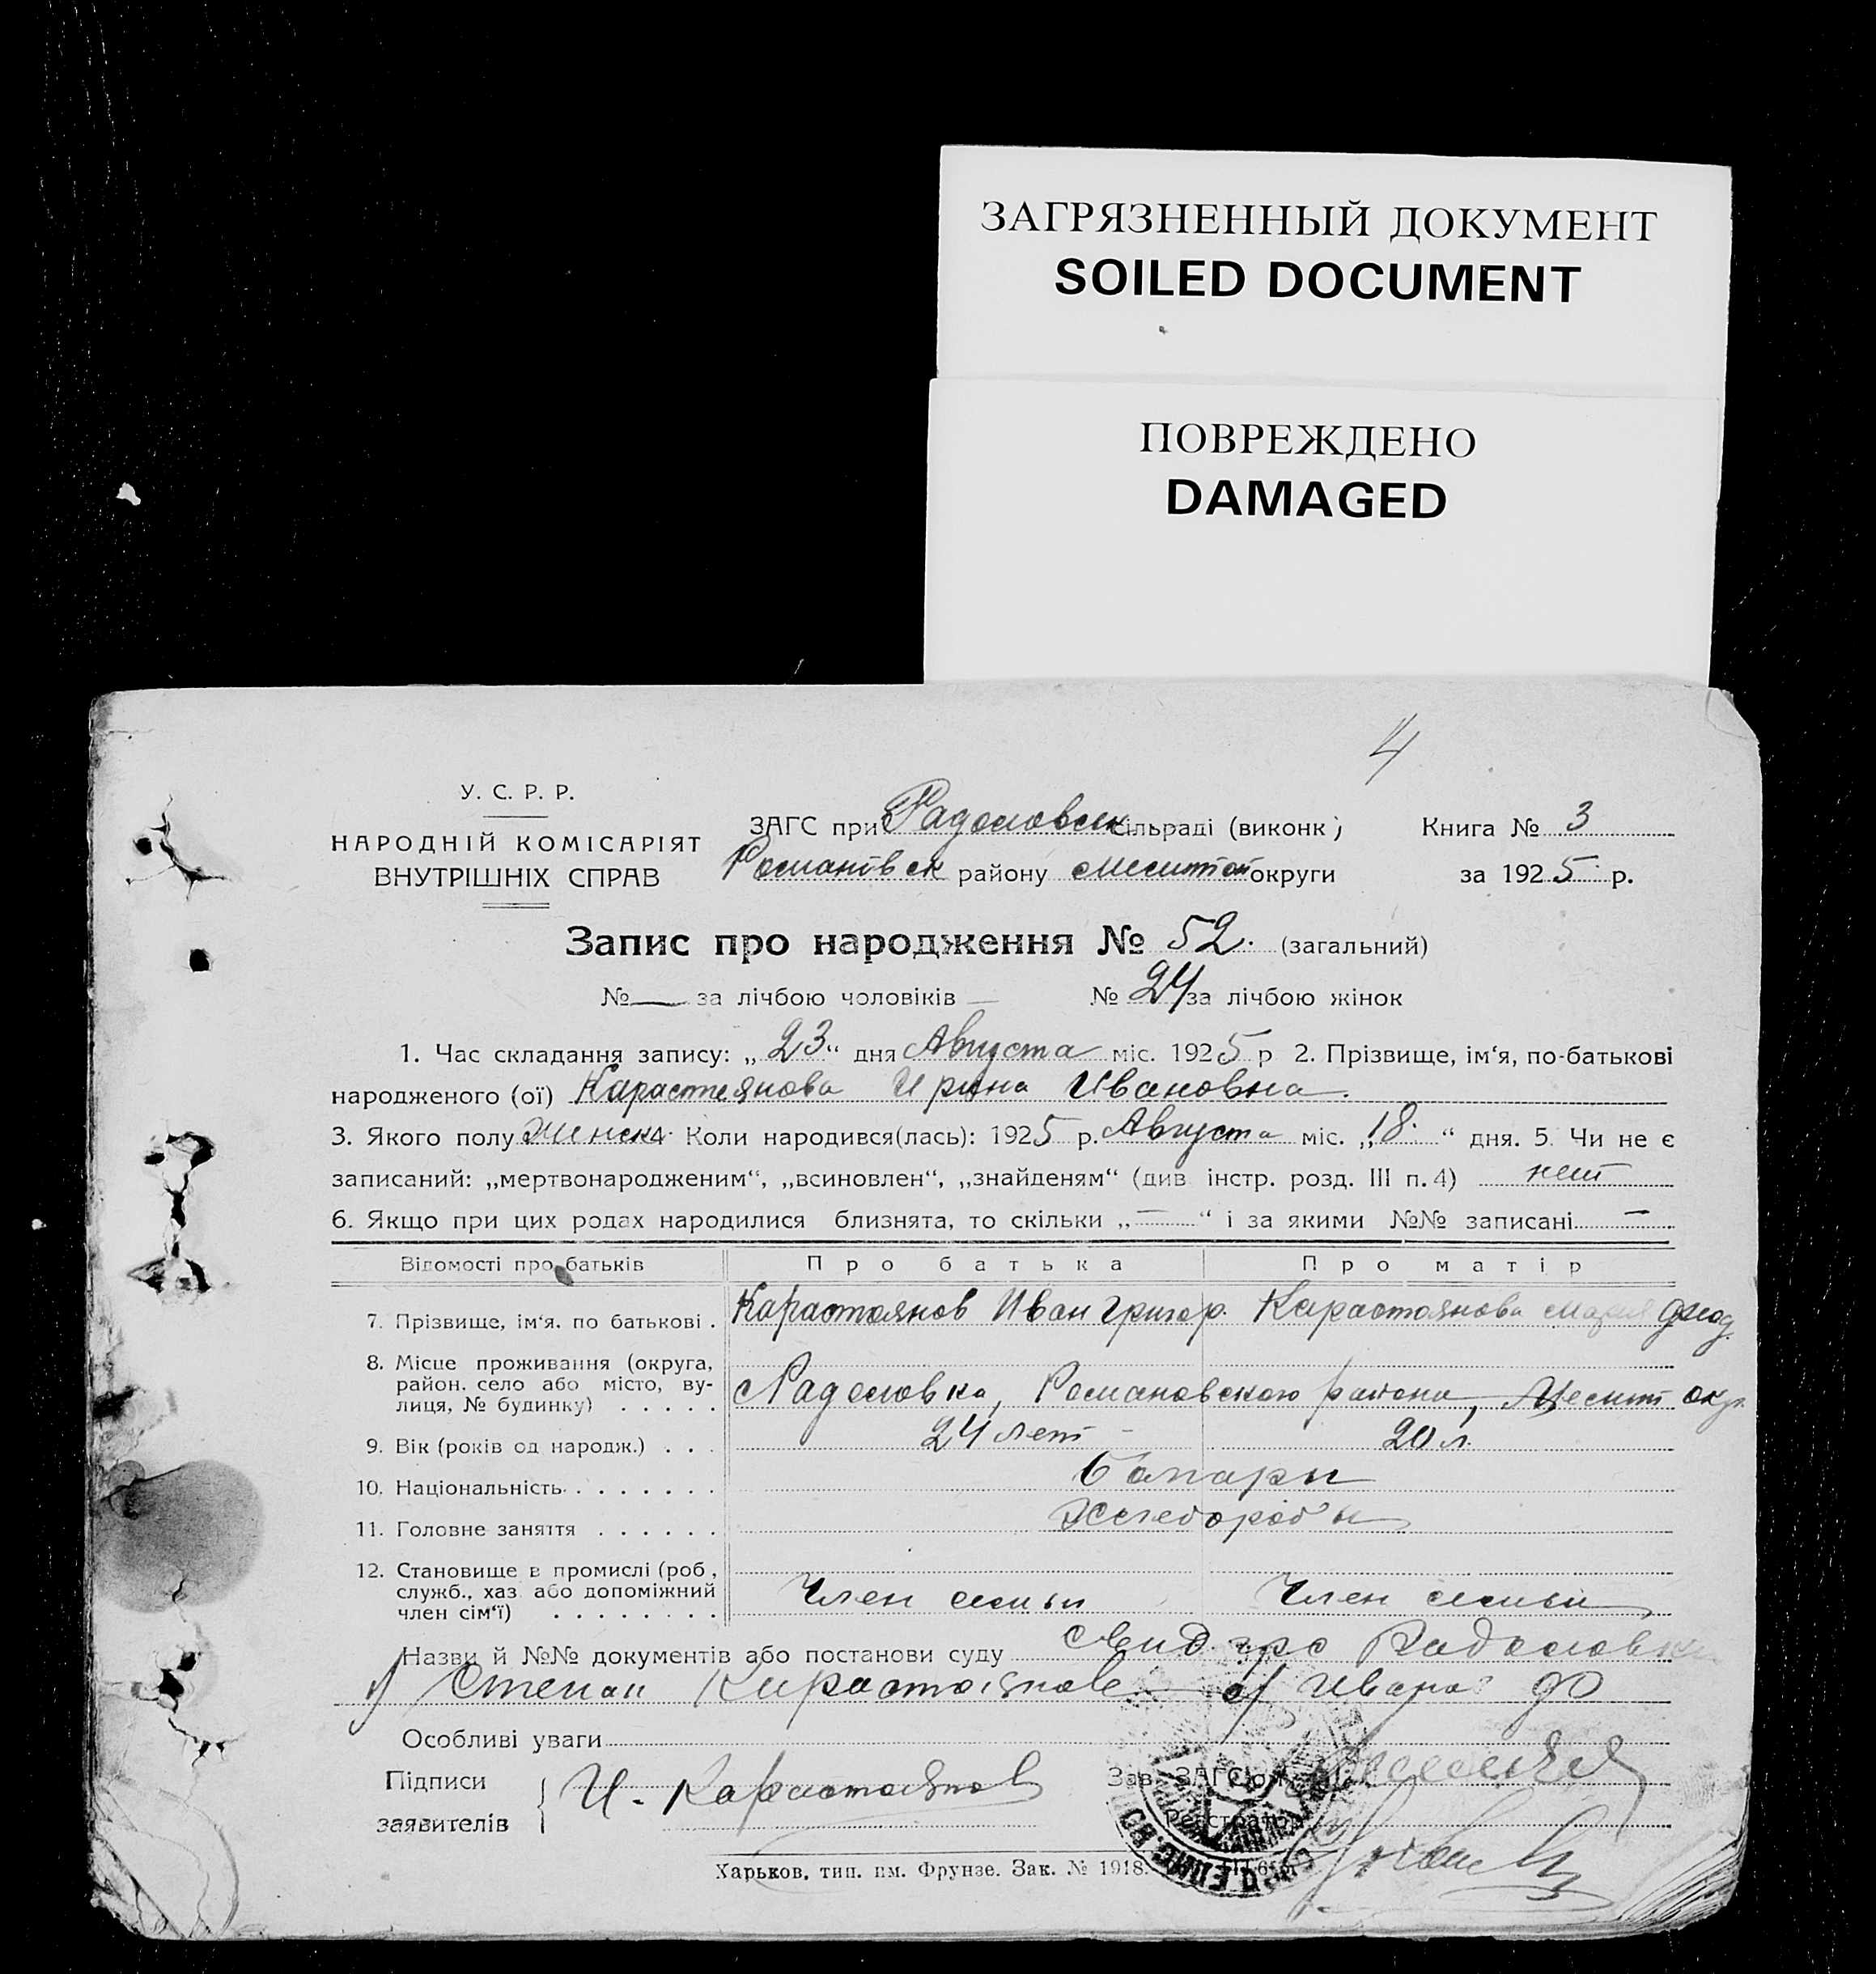 ЗАГРЯЗНЕННЫЙ ДОКУМЕНТ
SOILED DOCUMENT
ПОВРЕЖДЕНО
DAMAGED
4
У. С. Р. Р.
НАРОДНІЙ КОМІСАРІЯТ
ВНУТРІШНІХ СПРАВ
ЗАГС при Радоловск сільраді (виконк) Книга № 3
Романовск району Мелитоп округи за 1925 р.
Запис про народження № 52. (загальний)
№ — за лічбою чоловіків — № 24 за лічбою жінок
1. Час складання запису: „23“ дня Августа міс. 1925 р 2. Прізвище, ім‘я, по-батькові
народженого (ої) Карастоянова Ирина Ивановна.
3. Якого полу женск 4 Коли народився(лась): 1925 р. Августа міс. „18.“ дня. 5. Чи не є
записаний: „мертвонародженим“, „всиновлен“, „знайденям“ (див інстр. розд. III п. 4) нет
6. Якщо при цих родах народилися близнята, то скільки „—“ і за якими №№ записані —
Відомості про батьків Про батька Про матір
7. Прізвище, ім‘я. по батькові . Карастоянов Иван Григор. Карастоянова Мария
8. Місце проживання (округа,
район. село або місто, ву-
лиця, № будинку) . . . . . Радоловка, Романовского района, Мелит окр.
9. Вік (років од народж.) . . . 24 лет 20 л.
10. Національність . . . . . . . Болгары
11. Головне заняття . . . . . . Хлебороб'ы
12. Становище в промислі (роб.,
служб., хаз. або допоміжний
член сім‘ї) . . . . . . . . Член семьи Член семьи
Назви й №№ документів або постанови суду Радоловки
Степан Карастоянов
Особливі уваги
Підписи
заявителів { И. Карастоянов
Зав. ЗАГСом
Реєстратор
Харьков, тип. им. Фрунзе. Зак. № 1918.